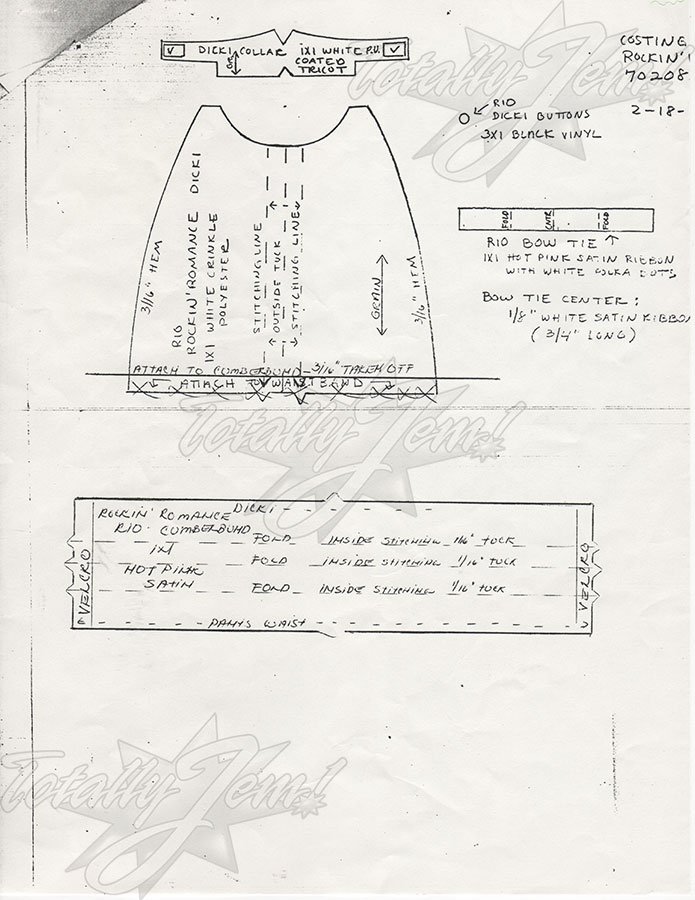 DICKI COLLAR 1X1 WHITE P.U.
COATED
TRICOT
COSTING
ROCKIN'
70208
2-18-
RIO
DICKI BUTTONS
3X1 BLACK VINYL
RIO
ROCKIN' ROMANCE DICKI
1X1 WHITE CRINKLE
POLYESTER
3/16" HEM
STITCHING LINE
OUTSIDE TUCK
STITCHING LINE
GRAIN
3/16" HEM
ATTACH TO CUMBERBUND - 3/16" TAKEN OFF
ATTACH TO WAISTBAND
FOLD
CNTR
FOLD
RIO BOW TIE
1X1 HOT PINK SATIN RIBBON
WITH WHITE POLKA DOTS
BOW TIE CENTER:
1/8" WHITE SATIN RIBBO
(3/4" LONG)
Totally Jem!
Totally Jem!
DICKI
ROCKIN' ROMANCE
RIO CUMBERBUND
1X1
HOT PINK
SATIN
FOLD INSIDE STITCHING 1/16" TUCK
FOLD INSIDE STITCHING 1/16" TUCK
FOLD INSIDE STITCHING 1/16" TUCK
VELCRO
VELCRO
PANTS WAIST
Totally Jem!